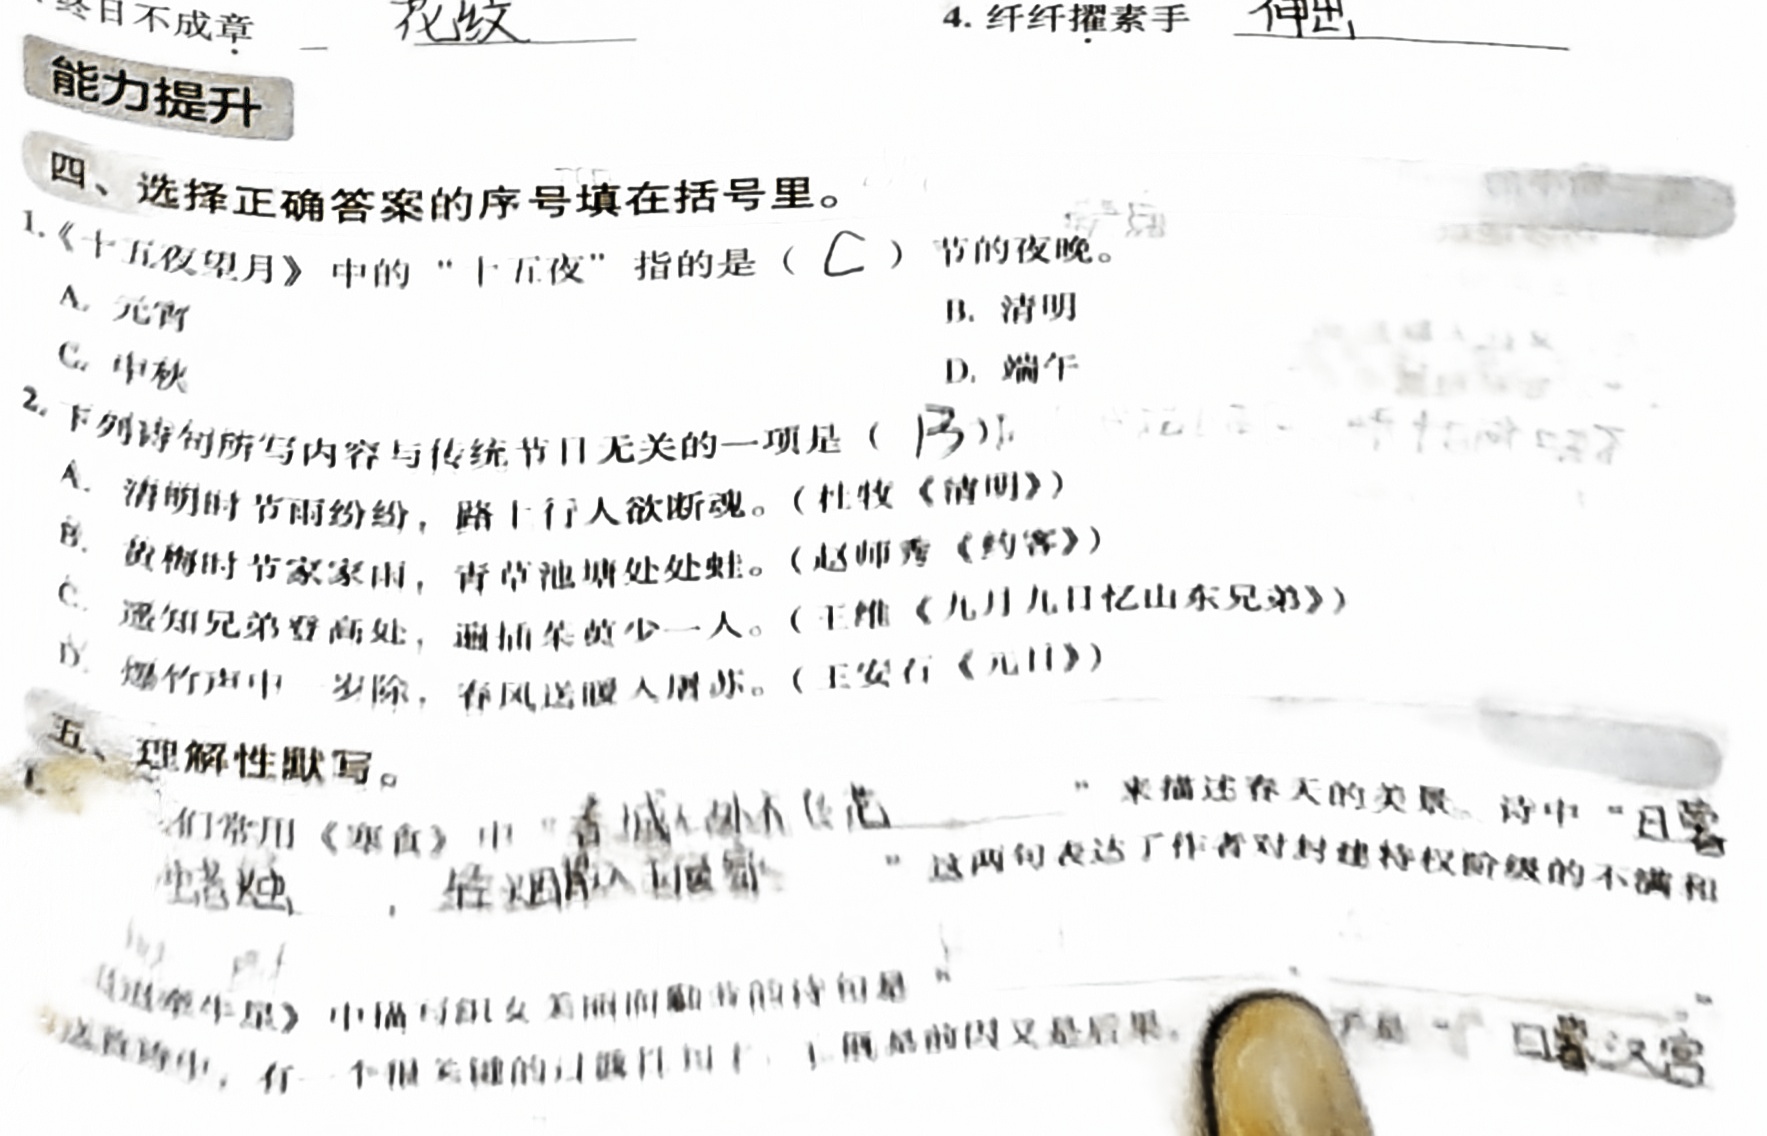 终日不成章 花纹 4. 纤纤擢素手 伸出
能力提升
四、选择正确答案的序号填在括号里。
1.《十五夜望月》中的“十五夜”指的是（ C ）节的夜晚。
A. 元宵 B. 清明
C. 中秋 D. 端午
2. 下列诗句所写内容与传统节日无关的一项是（ B ）
A. 清明时节雨纷纷，路上行人欲断魂。（杜牧《清明》）
B. 黄梅时节家家雨，青草池塘处处蛙。（赵师秀《约客》）
C. 遥知兄弟登高处，遍插茱萸少一人。（王维《九月九日忆山东兄弟》）
D. 爆竹声中一岁除，春风送暖入屠苏。（王安石《元日》）
五、理解性默写。
1. 们常用《寒食》中“春城 不 花”来描述春天的美景。诗中“日暮
蜡烛，轻烟 入 ”这两句表达了作者对封建特权阶级的不满和
牵牛星》中描写织女美丽 的诗句是“ ”。
这首诗中，有一个很关键的过 既是前因又是后果。 是“ 日暮汉宫